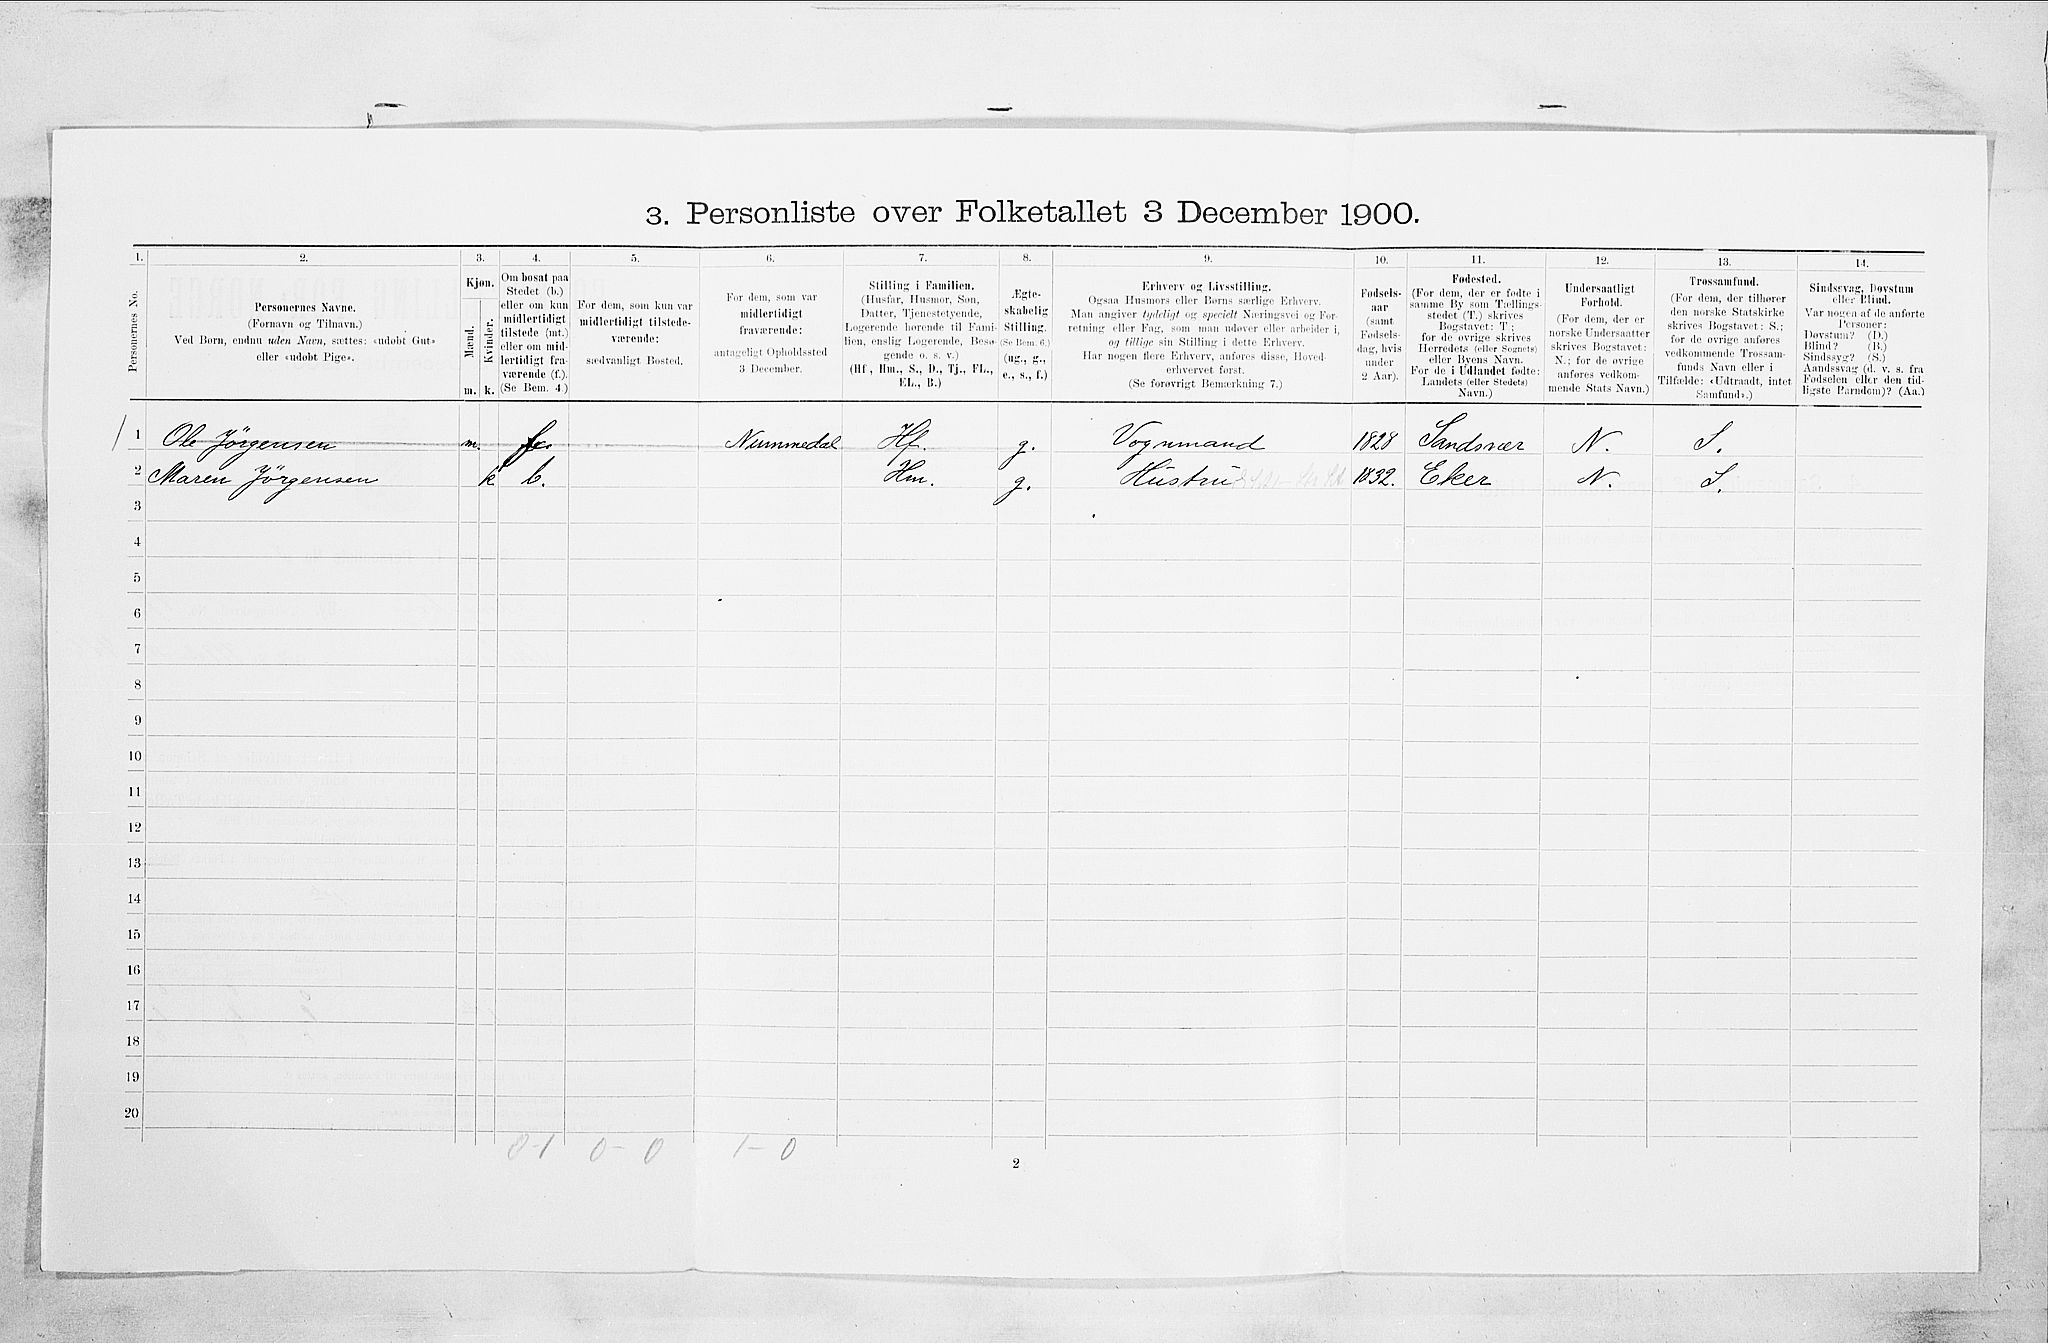 3. Personliste over Folketallet 3 December 1900.
1. 2. 3. 4. 5. 6. 7. 8. 9. 10. 11. 12. 13. 14.
Personernes No.
Personernes Navne.
(Fornavn og Tilnavn.)
Ved Børn, endnu uden Navn, sættes: «udøbt Gut»
eller «udøbt Pige».
Kjøn.
Mænd.
Kvinder.
m. k.
Om bosat paa
Stedet (b.)
eller om kun
midlertidigt
tilstede (mt.)
eller om mid-
lertidigt fra-
værende (f.).
(Se Bem. 4.)
For dem, som kun var
midlertidigt tilstede-
værende:
sædvanligt Bosted.
For dem, som var
midlertidigt
fraværende:
antageligt Opholdssted
3 December.
Stilling i Familien.
(Husfar, Husmor, Søn,
Datter, Tjenestetyende,
Logerende hørende til Fami-
lien, enslig Logerende, Besø-
gende o. s. v.)
(Hf., Hm., S., D., Tj., FL.,
EL., B.)
Ægte-
skabelig
Stilling.
(Se Bem. 6.)
(ug., g.,
e., s., f.)
Erhverv og Livsstilling.
Ogsaa Husmors eller Børns særlige Erhverv.
Man angiver tydeligt og specielt Næringsvei og For-
retning eller Fag, som man udøver eller arbeider i,
og tillige sin Stilling i dette Erhverv.
Har nogen flere Erhverv, anføres disse, Hoved-
erhvervet først.
(Se forøvrigt Bemærkning 7.)
Fødsels-
aar
(samt
Fødsels-
dag, hvis
under
2 Aar).
Fødested.
(For dem, der er fødte i
samme By som Tællings-
stedet (T.) skrives
Bogstavet: T;
for de øvrige skrives
Herredets (eller Sognets)
eller Byens Navn.
For de i Udlandet fødte:
Landets (eller Stedets)
Navn.)
Undersaatligt
Forhold.
(For dem, der er
norske Undersaatter
skrives Bogstavet:
N.; for de øvrige
anføres vedkom-
mende Stats Navn.)
Trossamfund.
(For dem, der tilhører
den norske Statskirke
skrives Bogstavet: S.;
for de øvrige anføres
vedkommende Trossam-
funds Navn eller i
Tilfælde: «Udtraadt, intet
Samfund».)
Sindssvag, Døvstum
eller Blind.
Var nogen af de anførte
Personer:
Døvstum? (D.)
Blind? (B.)
Sindssyg? (S.)
Aandssvag (d. v. s. fra
Fødselen eller den tid-
ligste Barndom)? (Aa.)
1 Ole Jörgensen m. f. Nummedal Hf. g. Vognmand 1828 Sandsvær N. S.
2 Maren Jörgensen k b. Hm. g. Hustru 1832. Eker N. S.
3
4
5
6
7
8
9
10
11
12
13
14
15
16
17
18
19
20
0-1 0-0 1-0
2